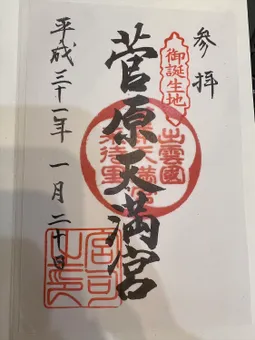 参拝
御誕生地
出雲國
菅原天満宮
平成三十一年一月二十日
宮司之印